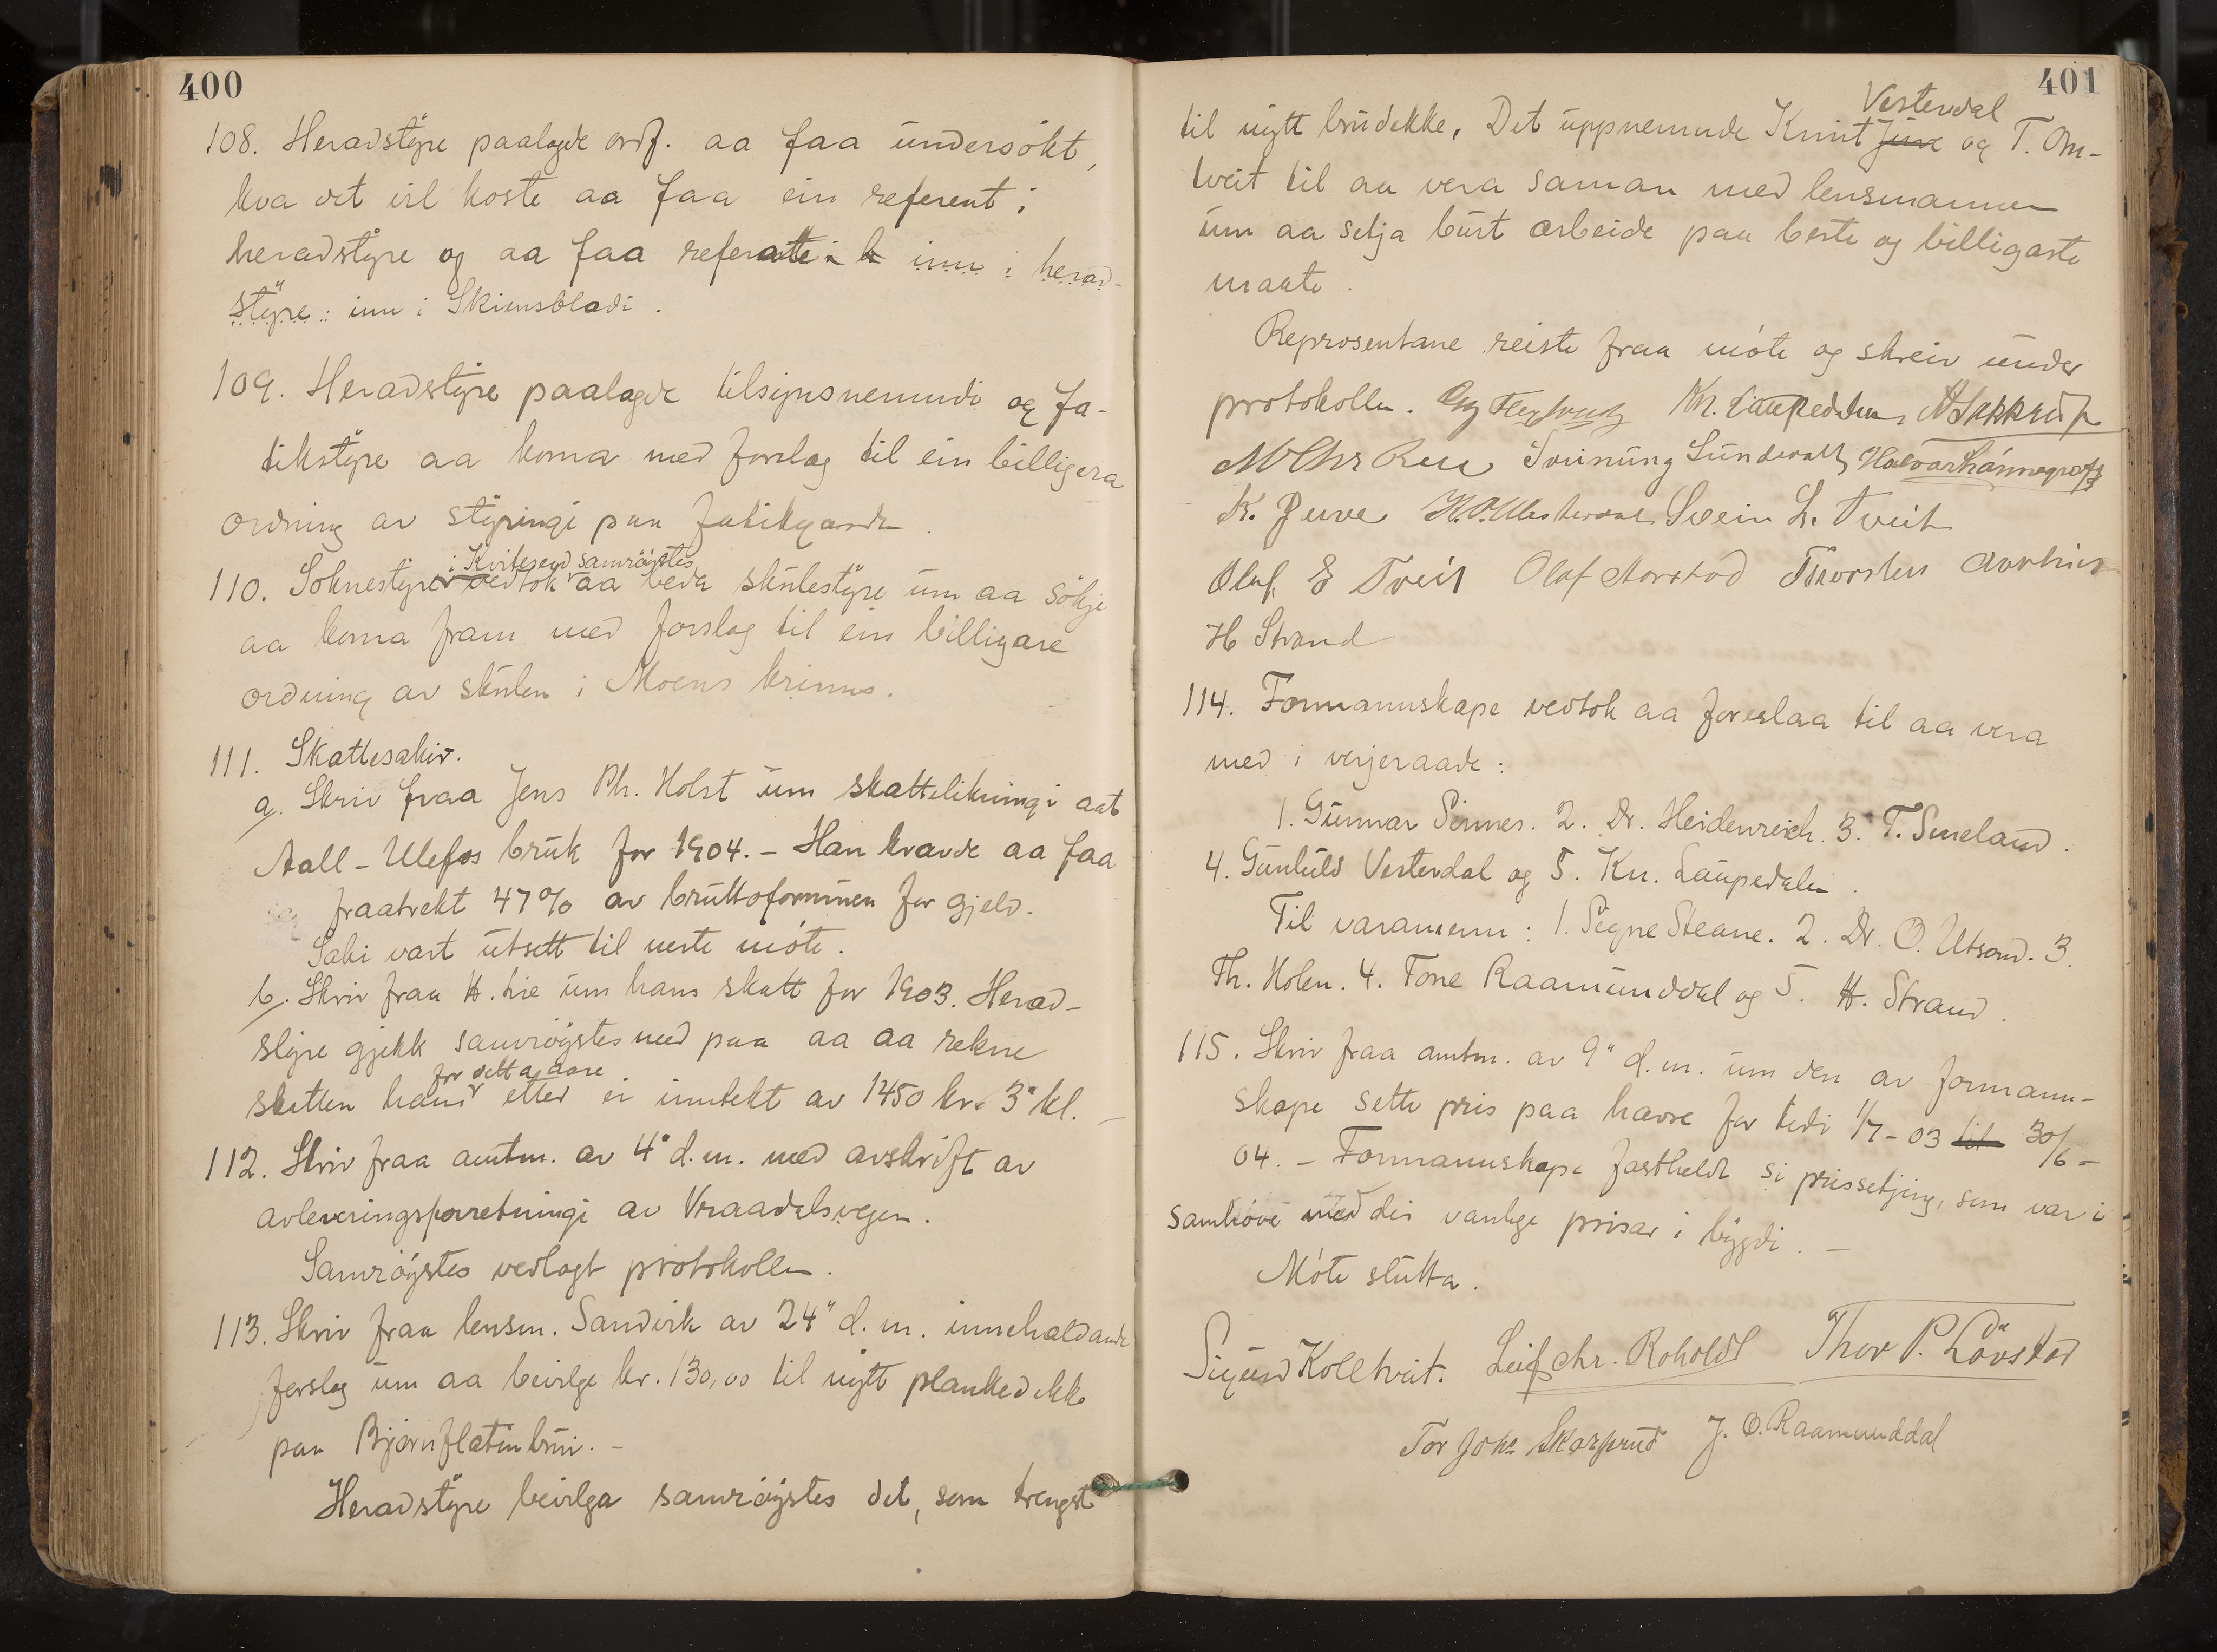 400
108. Heradstyre paalagde ordf. aa faa undersökt,
kva det vil koste aa faa ein referent i
heradstyre og aa faa referatte i h inn i herad-
styre inn i Skiensbladi.
109. Heradstyre paalagde tilsynsnemndi og fa-
tikstyre aa koma med forslag til ein billigera
ordning av styringi paa fatikgarde.
i Kviteseid samröystes
110. Soknestyre vedtok aa beda skulestyre um aa sökje
aa koma fram med forslag til ein billigare
ordning av skulen i Moens krinns.
111. Skattesakir.
a. Skriv fraa Jens Ph. Holst um skattelikningi aat
Aall-Ulefos bruk for 1904. - Han kravde aa faa
fraatrekt 47% av bruttoformuen for gjeld.
Saki vart utsett til neste möte.
b. Skriv fraa H. Lie um hans skatt for 1903. Herad-
styre gjekk samröystes med paa aa aa rekne
for detta aare
skatten hans etter ei inntekt av 1450 kr. 3" kl. -
112. Skriv fraa amtm. av 4" d.m. med avskrift av
avleveringsforretningi av Vraadalsvegen.
Samröystes vedlagt protokollen.
113. Skriv fraa lensm. Sandvik av 24" d.m. innehaldande
forslag um aa beivilge kr. 130,00 til nytt plankedekke
paa Bjørnflatinbrui. -
Heradstyre beivilga samröystes det, som trengst
401
Vesterdal
til nytt brudekke. Det uppnemnde Knut Juve og T. Om-
tveit til aa vera saman med lensmannen
um aa setja burt arbeide paa beste og billigaste
maate.
Reprosentane reiste fraa möte og skreiv under
protokollen. Kn. Laupedalen A Sakkrup
M Chr Svinung Sundvall
K. Juve H.O. Vesterdal Svein L. Tveit
Olaf E Tveit Olaf Aarstad Thorsten Aarhus
H Strand
114. Formannskape vedtok aa foreslaa til aa vera
med i verjeraade:
1. Gunnar Sinnes. 2. Dr. Heidenreich. 3. T. Smeland.
4. Gunhild Vesterdal og 5. Kn. Laupedalen.
Til varamenn: 1. Signe Steane. 2. Dr. O. Utsond. 3.
Th. Holen. 4. Tone Raamunddal og 5. H. Strand.
115. Skriv fraa amtm. av 9" d.m. um den av formann-
skape sette pris paa havre for tidi 1/7-03 til 30/6-
04. - Formannskape fastheldt si prissetjing, som var i
samhöve med dei vanlege prisar i bygdi. -
Möte slutta.
Sigurd Kolltveit. Leif Chr. Roholdt Thor P. Lövstad
Tor Johs Skarprud J. O. Raamunddal